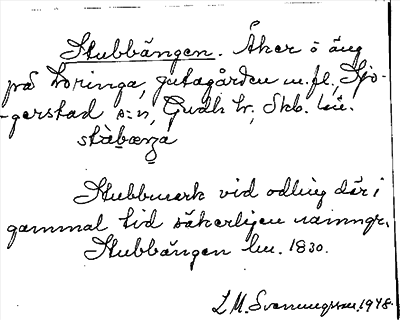 Stubbängen. Åker o äng
på Loringa, Jutagården m.fl., Sjo-
-gerstad s:n, Gudh. hr, Skb. län.
stȧbæŋa
Stubbmark vid odling där i
gammal tid säkerligen namngr.
Stubbängen lm. 1830.
L M. Svenungsson, 1948.